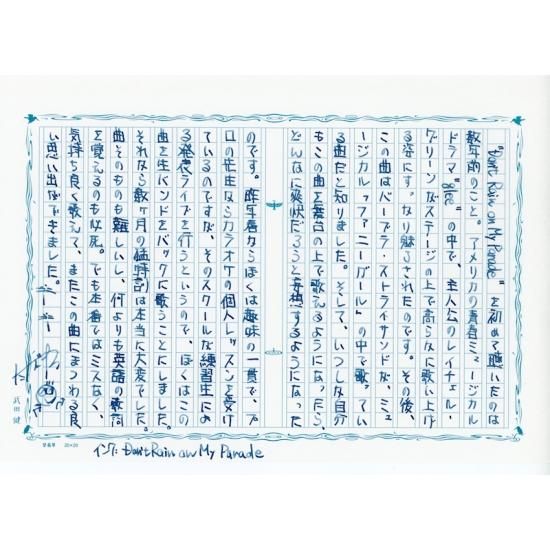 "Don't Rain on My Parade"を初めて聴いたのは
数年前のこと。アメリカの青春ミュージカル
ドラマ"glee"の中で、主人公のレイチェル・
グリーンがステージの上で高らかに歌い上げ
る姿にすっかり魅了されたのです。その後、
この曲はバーブラ・ストライサンドが、ミュ
ージカル『ファニーガール』の中で歌ってい
る曲だと知りました。そして、いつしか自分
もこの曲を舞台の上で歌えるようになったら、
どんなに爽快だろうと妄想するようになった
のです。昨年春からぼくは趣味の一貫で、プ
ロの先生からカラオケの個人レッスンを受け
ているのですが、そのスクールな練習生によ
る発表ライブを行うというので、ぼくはこの
曲を生バンドをバックに歌うことにしました。
それから数ヶ月の猛特訓は本当に大変でした。
曲そのものも難しいし、何よりも英語の歌詞
を覚えるのも必死。でも本番ではミスなく、
気持ち良く歌えて、またこの曲にまつわる良
い思い出ができました。
武田健
20×20
インク: Don't Rain on My Parade